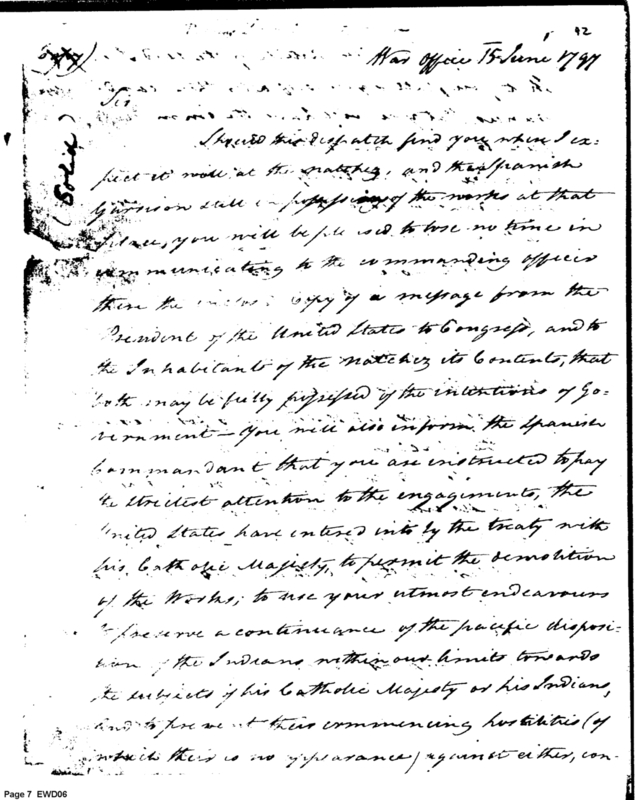 92
War Office 15 June 1797
Sir
(Solid)
Should this dispatch find you where I ex=
pect it will at the Natchez, and the Spanish
Garrison still in possession of the works at that
place, you will be pleased to lose no time in
communicating to the commanding officer
there the Copy of a message from the
President of the United States to Congress, and to
the Inhabitants of the Natchez its Contents, that
both may be fully possessed of the intentions of Go=
vernment — You will also inform the Spanish
Commandant that you are instructed to pay
the strictest attention to the engagements, the
United States have entered into by the treaty with
his Catholic Majesty, to permit the demolition
of the Works; to use your utmost endeavours
to preserve a continuance of the pacific disposi=
tion of the Indians within our limits towards
the subjects of his Catholic Majesty or his Indians,
and to prevent their commencing hostilities (of
which their is no appearance) against either, con-
Page 7 EWD06